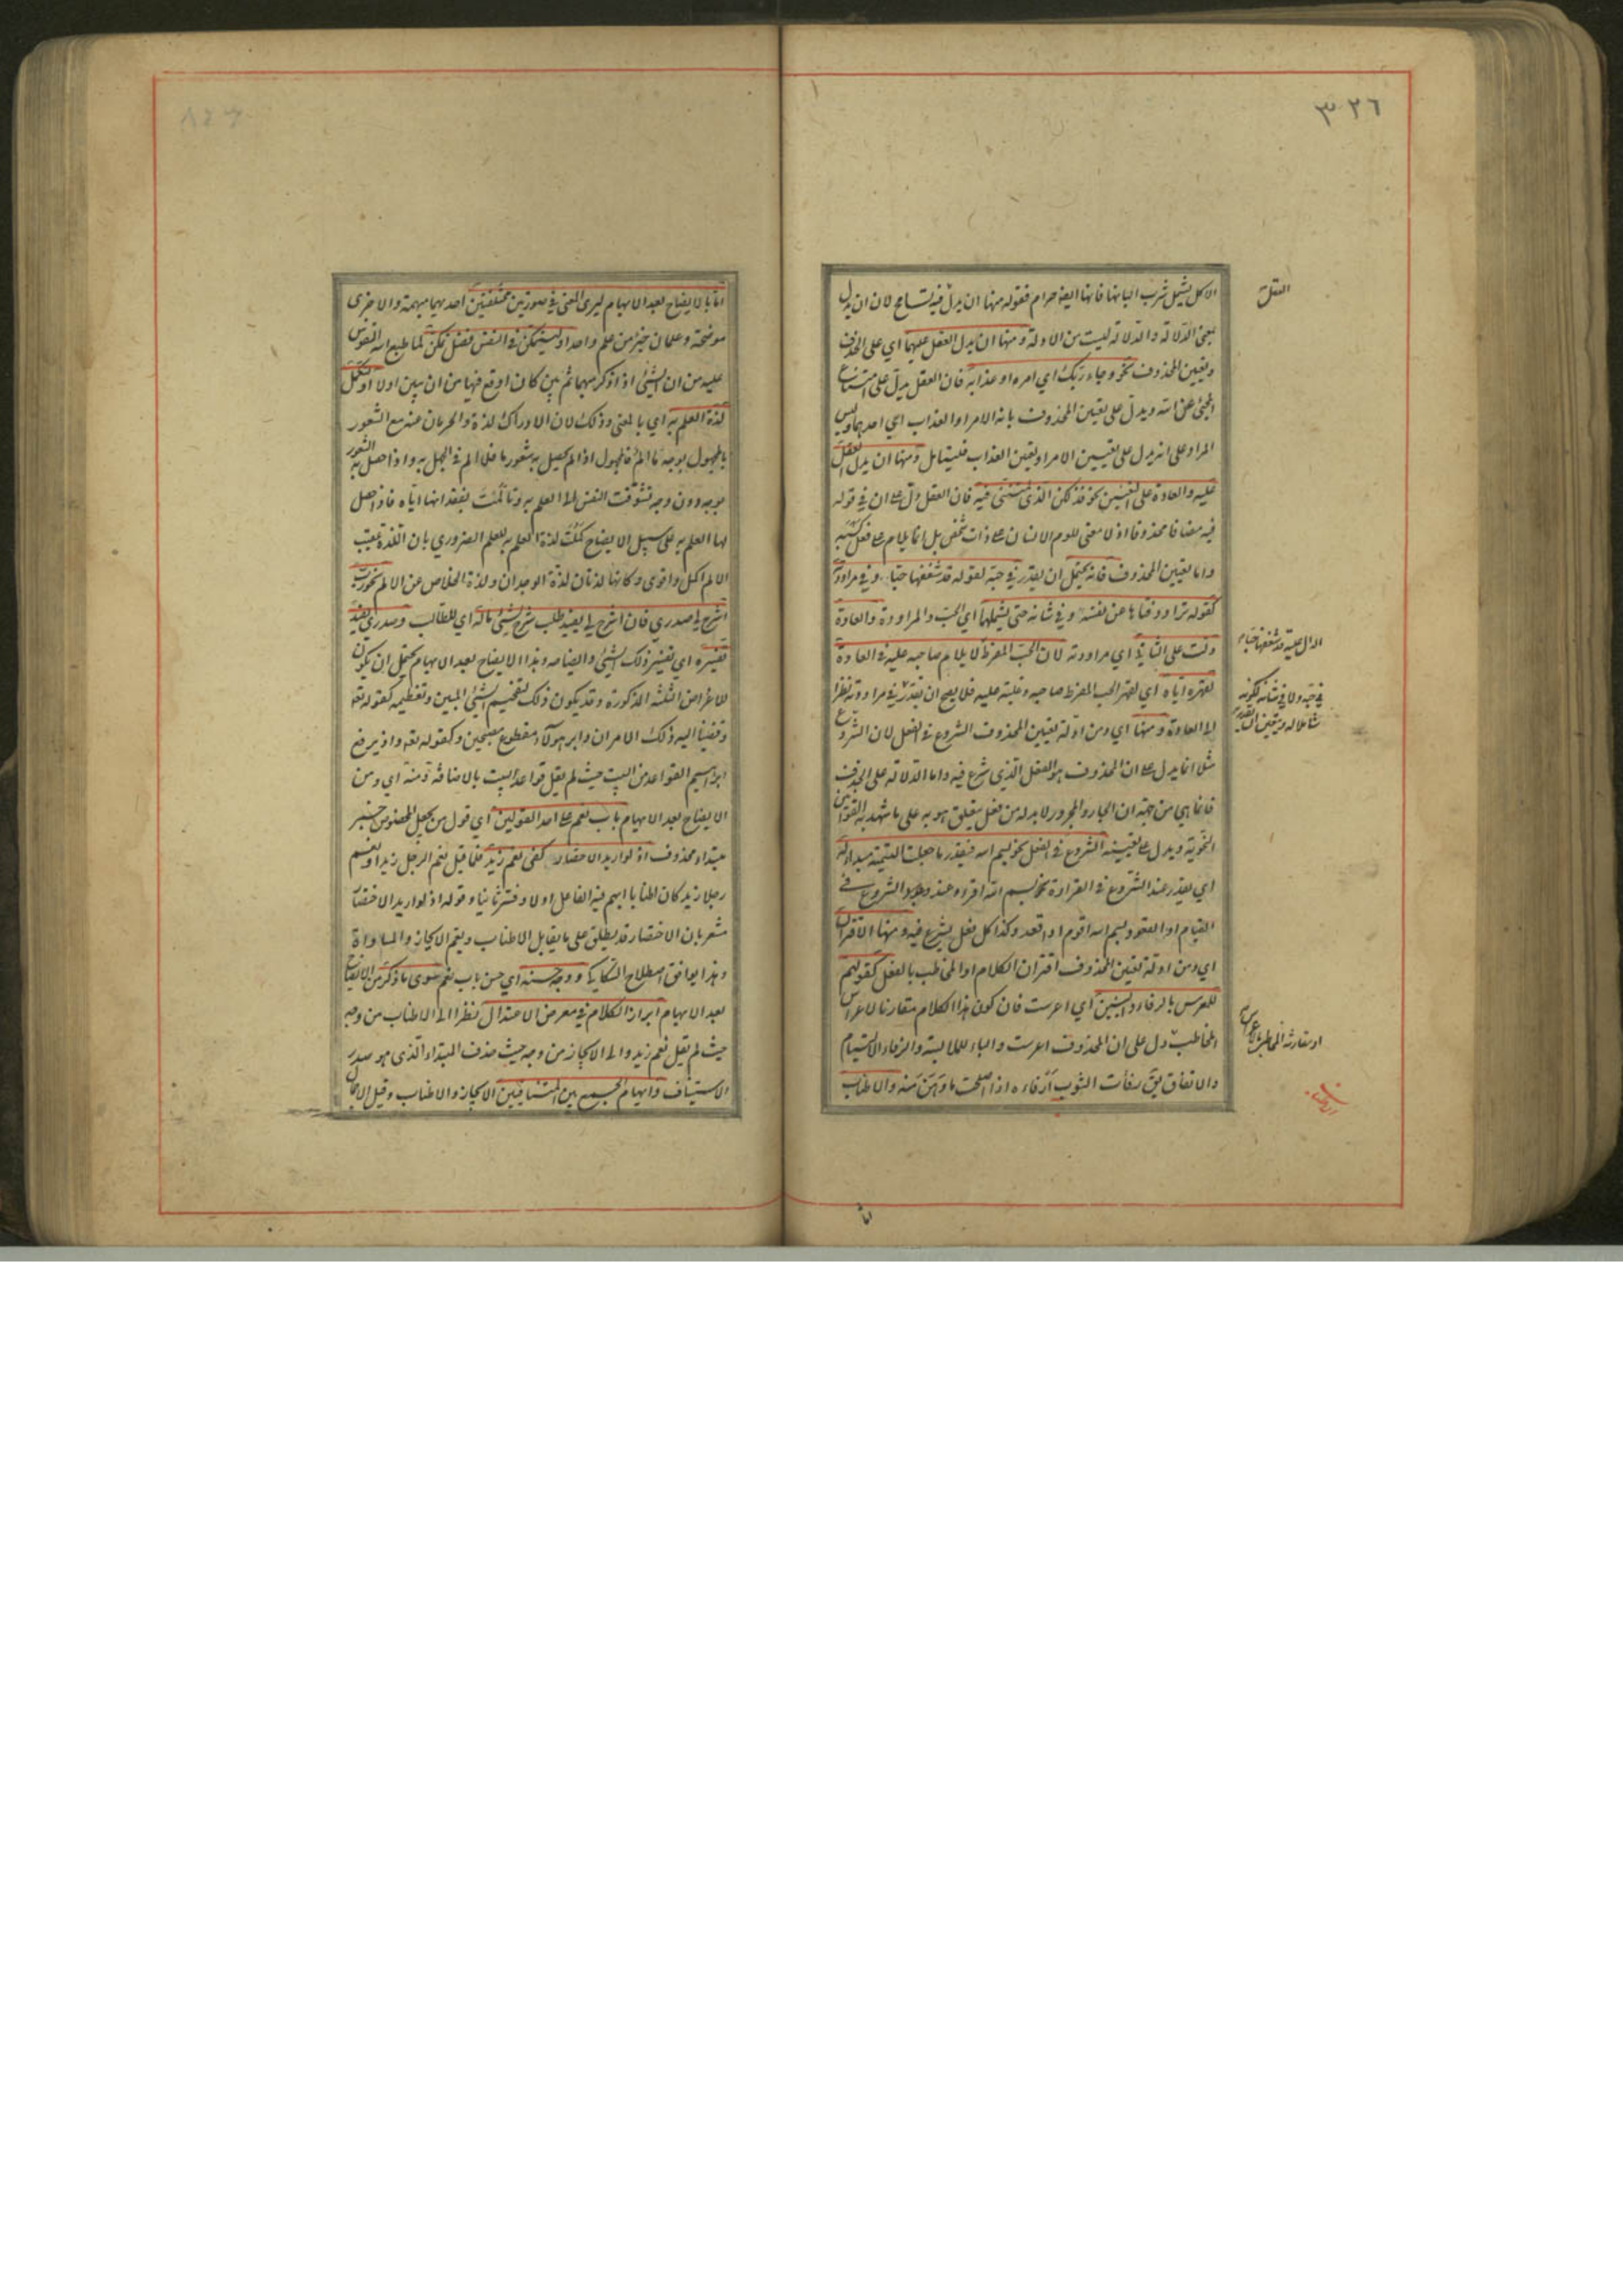 ٣٢٦
الاكل يشمل شرب البانها فانها ايضا حرام فقوله منها ان يدل فيه تسامح لان ان يدل
بمعنى الدلالة والدلالة ليست من الادلة ومنها ان يدل العقل عليهما اي على الحذف
وتعيين المحذوف نحو وجاء ربك اي امره او عذابه فان العقل يدل على امتناع
المجئ على الله ويدل على تعيين المحذوف بانه الامر او العذاب اي احدهما وليس
المراد على انه يدل على تعيين الامر او تعين العذاب فليتامل ومنها ان يدل العقل
عليه والعادة على التعيين نحو فذلكن الذي لمتنني فيه فان العقل دل على ان في قوله
فيه مضافا محذوفا اذ لا معنى للوم الانسان على ذات شخص بل انما يلام على فعل كسبه
واما تعيين المحذوف فانه يحتمل ان يقدر في حبه لقوله قد شغفها حبا وفي مراودته
لقوله تراود فتاها عن نفسه وفي شانه حتى يشملهما اي الحب والمراودة والعادة
دلت على الثاني اي مراودته لان الحب المفرط لا يلام صاحبه عليه في العادة
لقهره اياه اي لقهر الحب المفرط صاحبه وغلبته عليه فلا يصح ان يقدر في مراودته نظرا
الى العادة ومنها اي ومن ادلة تعيين المحذوف الشروع في الفعل لان الشروع
مثلا انما يدل على ان المحذوف هو الفعل الذي شرع فيه واما الدلالة على الحذف
فانما هي من جهة ان الجار والمجرور لا بد له من فعل يتعلق هو به على ما شهد به القوانين
النحوية ويدل على تعيينه الشروع في الفعل نحو بسم الله فيقدر ما جعلت التسمية مبدأ له
اي يقدر عند الشروع في القراءة نحو بسم الله اقرأ وعند الشروع في
القيام او القعود بسم الله اقوم او اقعد وكذا كل فعل يشرع فيه ومنها الاقتران
اي ومن ادلة تعيين المحذوف اقتران الكلام او المخاطب بالفعل كقولهم
للمعرس بالرفاء والبنين اي اعرست فان كون هذا الكلام مقارنا لاعراس
المخاطب دل على ان المحذوف اعرست والباء للملابسة والرفاء الالتيام
والاتفاق يق رفأت الثوب ارفاءه اذا اصلحت ما وهن منه والاطناب
العقل
الدال عليه قد شغفها حبا
في حبه ولا في شانه لكونه
شاملا له ويتعين التقدير
او مقارنة المخاطب بالاعراس
اما بالايضاح بعد الابهام ليرى المعنى في صورتين مختلفتين احديهما مبهمة والاخرى
موضحة وعلمان خير من علم واحد او ليتمكن في النفس فضل تمكن لما طبع الله النفوس
عليه من ان الشئ اذا ذكر مبهما ثم بين كان اوقع فيها من ان يبين اولا او لتكمل
لذة العلم به اي بالمعنى وذلك لان الادراك لذة والحرمان عنه مع الشعور
بالمجهول بوجه ما الم فالمجهول اذا لم يحصل به شعور ما فلا الم في الجهل به واذا حصل به الشعور
بوجه دون وجه تشوقت النفس الى العلم به وتألمت بفقدانها اياه فاذا حصل
لها العلم به على سبيل الايضاح كملت لذة العلم به للعلم الضروري بان اللذة عقيب
الالم اكمل واقوى وكانها لذتان لذة الوجدان ولذة الخلاص عن الالم نحو رب
اشرح لي صدري فان اشرح لي يفيد طلب شرح لشئ ما له اي للطالب وصدري يفيد
تفسيره اي تفسير ذلك الشئ وايضاحه وهذا الايضاح بعد الابهام يحتمل ان يكون
للاغراض الثلثة المذكورة وقد يكون ذلك لتفخيم الشئ المبين وتعظيمه كقوله تع
وقضينا اليه ذلك الامر ان دابر هؤلاء مقطوع مصبحين وكقوله تع واذ يرفع
ابراهيم القواعد من البيت حيث لم يقل قواعد البيت بالاضافة ومنه اي ومن
الايضاح بعد الابهام باب نعم على احد القولين اي قول من يجعل المخصوص خبر
مبتداء محذوف اذ لو اريد الاختصار كفى نعم زيد فلما قيل نعم الرجل زيد او نعم
رجلا زيد كان اطنابا ابهم فيه الفاعل اولا وفسر ثانيا وقوله اذ لو اريد الاختصار
مشعر بان الاختصار قد يطلق على ما يقابل الاطناب ويعم الايجاز والمساواة
وهذا يوافق اصطلاح السكاكي ووجه حسنه اي حسن باب نعم سوى ما ذكر من الايضاح
بعد الابهام ابراز الكلام في معرض الاعتدال نظرا الى الاطناب من وجه
حيث لم يقل نعم زيد والى الايجاز من وجه حيث حذف المبتداء الذي هو صدر
الاستيناف وايهام الجمع بين المتنافيين الايجاز والاطناب وقيل الاجمال